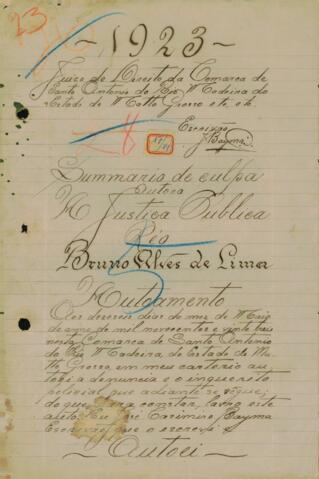 23
- 1923 -
Juizo de Direito da Comarca de
Santo Antonio do Rio Madeira do
Estado de Matto Grosso etc etc
Escrivão
JBayma
Summario de culpa
Autora
A Justiça Publica
Réo
Bruno Alves de Lima
Autoamento
Aos dezeseis dias do mez de Maio
do anno de mil novecentos e vinte tres
nesta Comarca de Santo Antonio
do Rio Madeira do Estado de Ma-
tto Grosso em meu cartorio au
toei a denuncia e o inquerito
policial que adiante se segue;
do que para constar, lavro este
auto. Eu José Casimiro Bayma
Escrivão que o escrevi e
- Autoei -